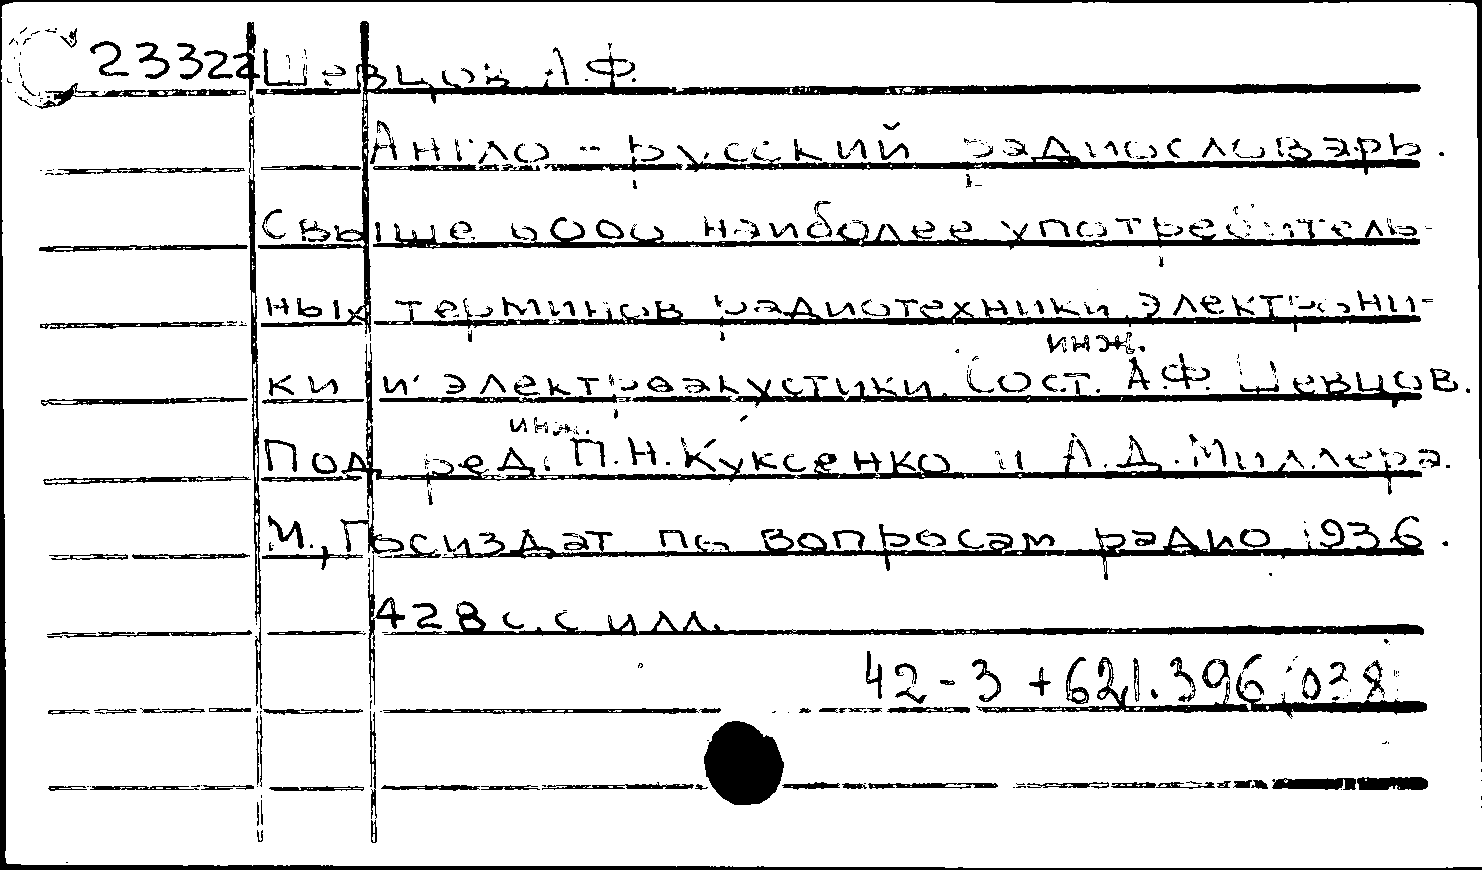 С 23322 Шевцов А.Ф.
Англо-русский радиословарь.
Свыше 6000 наиболее употребитель-
ных терминов радиотехники, электрони-
инж.
ки и электроакустики. Сост. А.Ф. Шевцов.
инж.
Под ред. П.Н. Куксенко и А.Д. Миллера.
М., Госиздат по вопросам радио, 1936.
428 с. с илл.
42-3 + 621.396(038)